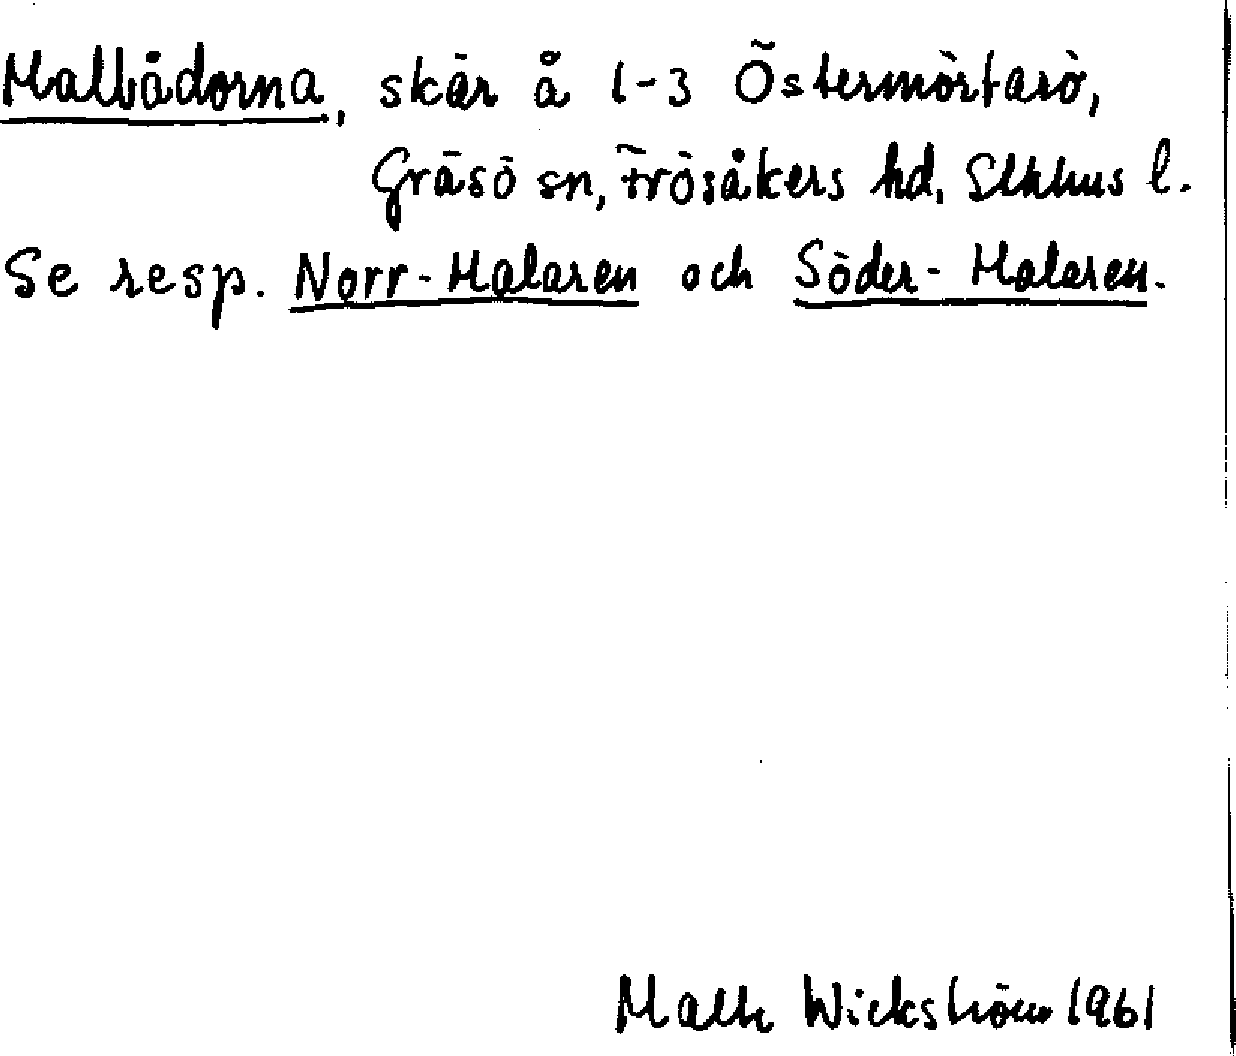 Malbådorna, skär å 1-3 Östermörtarö,
Gräsö sn, Frösåkers hd, Sthlms l.
Se resp. Norr-Malaren och Söder-Malaren.
Wickström 1961